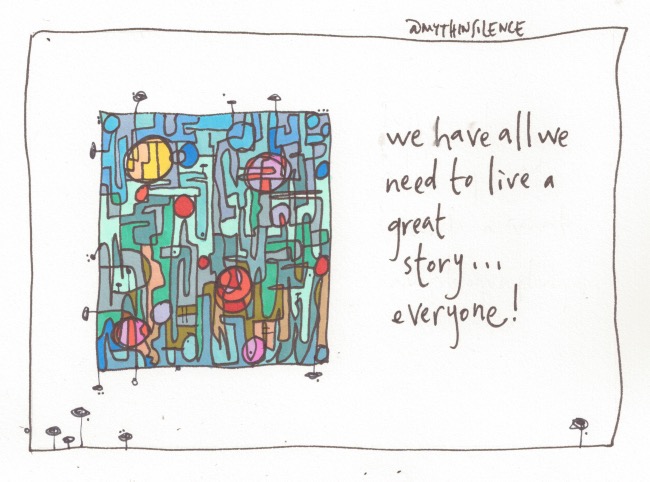 @MYTHINSILENCE
we have all we
need to live a
great
story...
everyone!